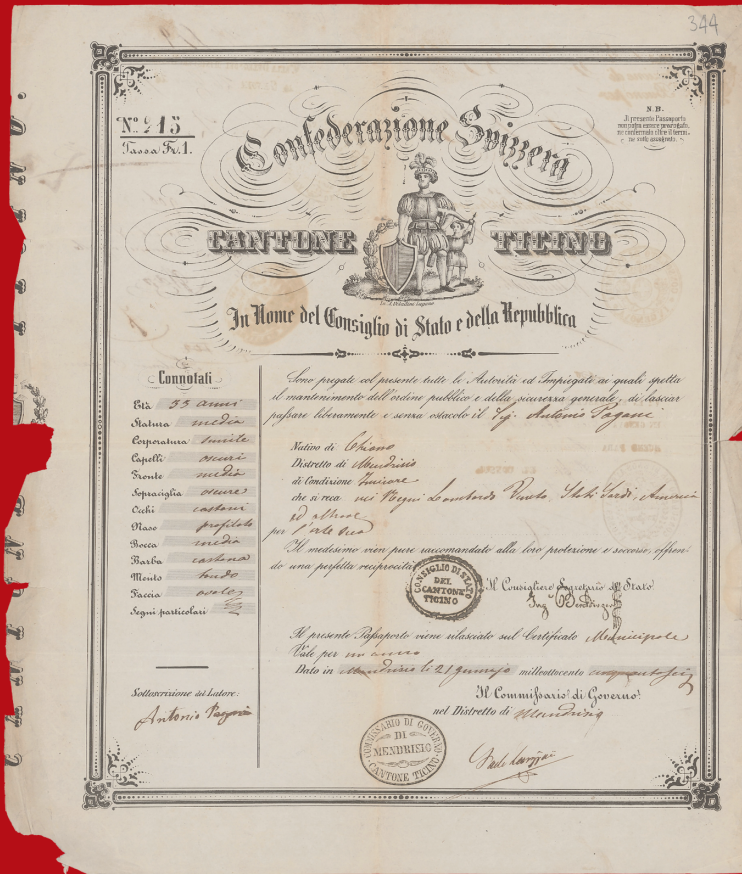 344
Nº 215
Tassa Fr. 1.
N.B.
Il presente Passaporto
non potrà essere prorogato,
ne confermato oltre il termi-
ne sotto assegnato.
Confederazione Svizzera
CANTONE TICINO
In Nome del Consiglio di Stato e della Repubblica
Connotati
Età 33 anni
Statura media
Corporatura
Capelli oscuri
Fronte media
Sopraciglia oscure
Occhi castani
Naso profilato
Bocca media
Barba castana
Mento tondo
Faccia ovale
Segni particolari
Sottoscrizione del Latore:
Antonio Pagani
Sono pregate col presente tutte le Autorità ed Impiegate ai quali spetta
il mantenimento dell'ordine pubblico e della sicurezza generale, di lasciar
passare liberamente e senza ostacolo il Sig. Antonio Pagani
Nativo di Chiasso
Distretto di Mendrisio
di Condizione
che si reca nei Regni Lombardo Veneto, Stati Sardi, America
ed altrove
per l'arte sua
Il medesimo vien pure raccomandato alla loro protezione e soccorso, offren-
do una perfetta reciprocità
CONSIGLIO DI STATO
DEL
CANTONE
TICINO
Il Consigliere Segretario di Stato
Il presente Passaporto viene rilasciato sul Certificato Municipale
Vale per un anno
Dato in Mendrisio li 21 mille ottocento
Il Commissario di Governo
nel Distretto di Mendrisio
COMMISSARIO DI GOVERNO
DI
MENDRISIO
CANTONE TICINO